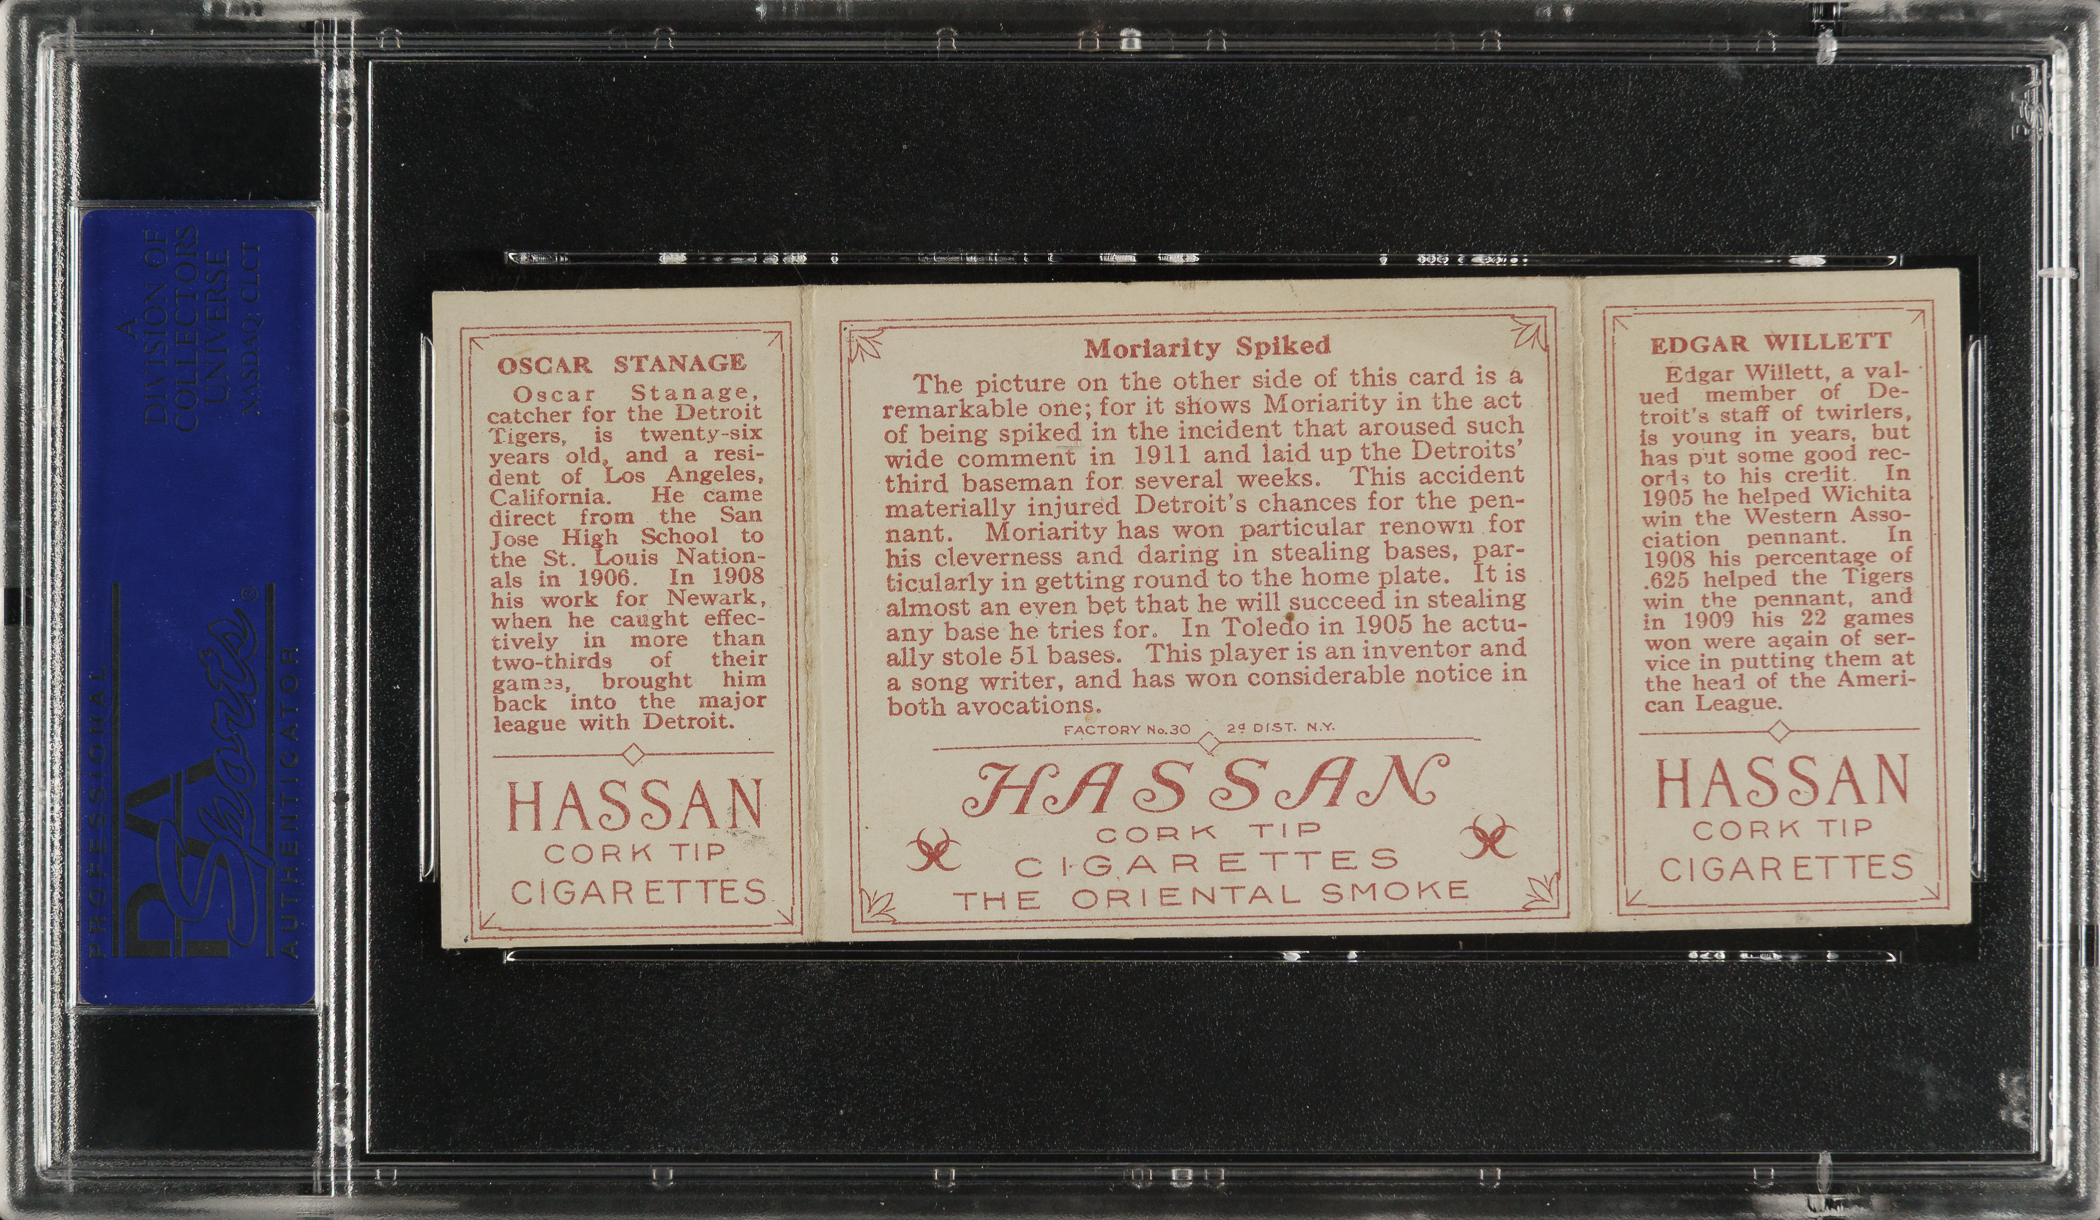 A
DIVISION OF
COLLECTORS
UNIVERSE
NASDAQ: CLCT
PROFESSIONAL
PSA
Sports®
AUTHENTICATOR
OSCAR STANAGE
Oscar Stanage,
catcher for the Detroit
Tigers, is twenty-six
years old, and a resi-
dent of Los Angeles,
California. He came
direct from the San
Jose High School to
the St. Louis Nation-
als in 1906. In 1908
his work for Newark,
when he caught effec-
tively in more than
two-thirds of their
games, brought him
back into the major
league with Detroit.
HASSAN
CORK TIP
CIGARETTES
Moriarity Spiked
The picture on the other side of this card is a
remarkable one; for it shows Moriarity in the act
of being spiked in the incident that aroused such
wide comment in 1911 and laid up the Detroits'
third baseman for several weeks. This accident
materially injured Detroit's chances for the pen-
nant. Moriarity has won particular renown for
his cleverness and daring in stealing bases, par-
ticularly in getting round to the home plate. It is
almost an even bet that he will succeed in stealing
any base he tries for. In Toledo in 1905 he actu-
ally stole 51 bases. This player is an inventor and
a song writer, and has won considerable notice in
both avocations.
FACTORY No.30 2d DIST. N.Y.
HASSAN
CORK TIP
CIGARETTES
THE ORIENTAL SMOKE
EDGAR WILLETT
Edgar Willett, a val-
ued member of De-
troit's staff of twirlers,
is young in years, but
has put some good rec-
ords to his credit. In
1905 he helped Wichita
win the Western Asso-
ciation pennant. In
1908 his percentage of
.625 helped the Tigers
win the pennant, and
in 1909 his 22 games
won were again of ser-
vice in putting them at
the head of the Ameri-
can League.
HASSAN
CORK TIP
CIGARETTES